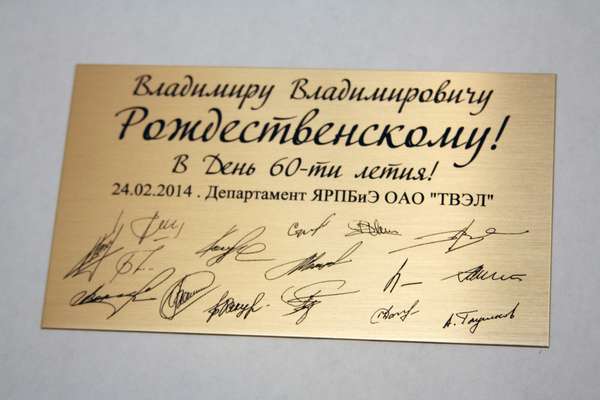 Владимиру Владимировичу
Рождественскому!
В День 60-ти летия!
24.02.2014 . Департамент ЯРПБиЭ ОАО "ТВЭЛ"